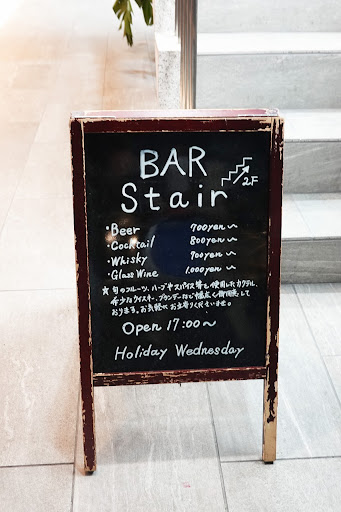 BAR
Stair 2F
・Beer 700yen～
・Cocktail 800yen～
・Whisky 900yen～
・Glass Wine 1,000yen～
★旬のフルーツ、ハーブやスパイス等を使用したカクテル、
希少なウイスキー、ブランデーなど幅広く御用意して
おります。お気軽にお立寄りくださいませ。
Open 17:00～
Holiday Wednesday